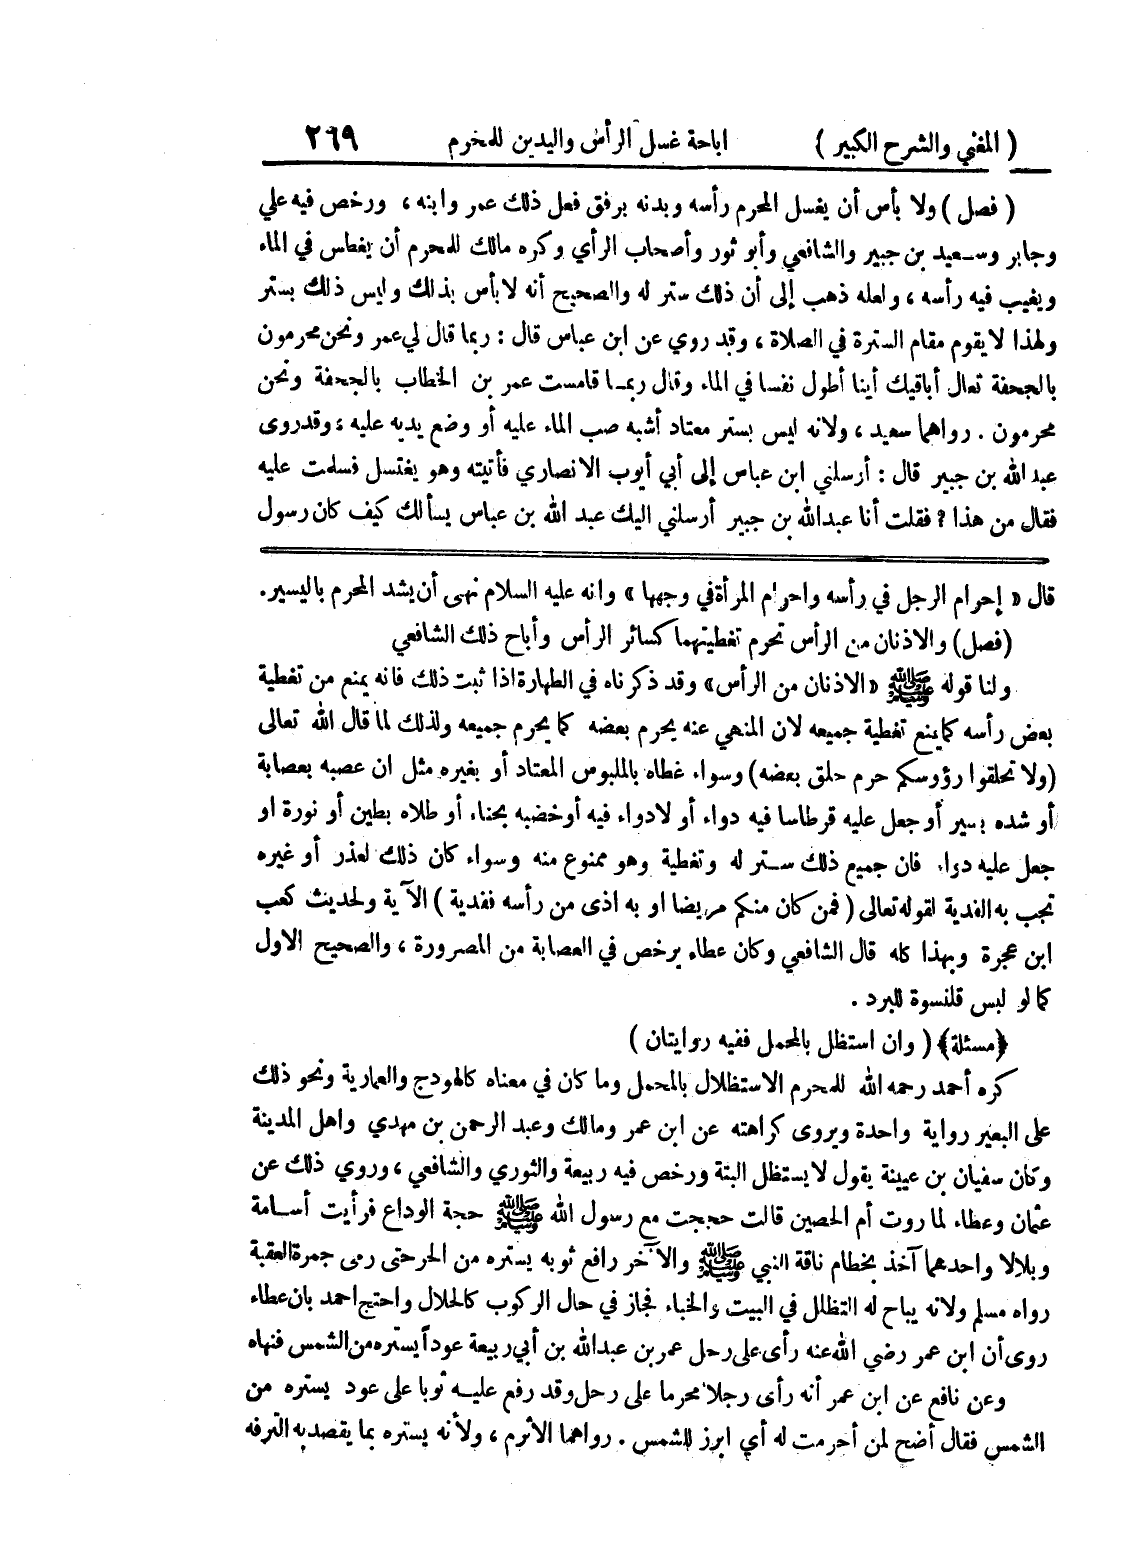 ( المغني والشرح الكبير ) اباحة غسل الرأس واليدين للمحرم ٢٦٩
( فصل ) ولا بأس أن يغسل المحرم رأسه وبدنه برفق فعل ذلك عمر وابنه ، ورخص فيه علي
وجابر وسعيد بن جبير والشافعي وأبو ثور وأصحاب الرأي وكره مالك للمحرم أن يغطس في الماء
ويغيب فيه رأسه ، ولعله ذهب إلى أن ذلك ستر له والصحيح أنه لا بأس بذلك وليس ذلك بستر
ولهذا لا يقوم مقام السترة في الصلاة ، وقد روي عن ابن عباس قال : ربما قال لي عمر ونحن محرمون
بالجحفة تعال أباقيك أينا أطول نفسا في الماء وقال ربما قامست عمر بن الخطاب بالجحفة ونحن
محرمون . رواهما سعيد ، ولانه ليس بستر معتاد أشبه صب الماء عليه أو وضع يديه عليه ، وقد روى
عبد الله بن جبير قال : أرسلني ابن عباس إلى أبي أيوب الانصاري فأتيته وهو يغتسل فسلمت عليه
فقال من هذا ؟ فقلت أنا عبد الله بن جبير أرسلني اليك عبد الله بن عباس يسألك كيف كان رسول
قال « إحرام الرجل في رأسه واحرام المرأة في وجهها » وانه عليه السلام نهى أن يشد المحرم باليسير.
(فصل) والاذنان من الرأس تحرم تغطيتهما كسائر الرأس وأباح ذلك الشافعي
ولنا قوله ﷺ «الاذنان من الرأس» وقد ذكرناه في الطهارة اذا ثبت ذلك فانه يمنع من تغطية
بعض رأسه كما يمنع تغطية جميعه لان المنهي عنه يحرم بعضه كما يحرم جميعه ولذلك لما قال الله تعالى
(ولا تحلقوا رؤوسكم حرم حلق بعضه) وسواء غطاه بالملبوس المعتاد أو بغيره مثل ان عصبه بعصابة
أو شده بسير أو جعل عليه قرطاسا فيه دواء أو لا دواء فيه أو خضبه بحناء أو طلاه بطين أو نورة او
جعل عليه دواء فان جميع ذلك ستر له وتغطية وهو ممنوع منه وسواء كان ذلك لعذر أو غيره
تجب به الفدية لقوله تعالى ( فمن كان منكم مريضا او به اذى من رأسه ففدية ) الآية ولحديث كعب
ابن عجرة وبهذا كله قال الشافعي وكان عطاء يرخص في العصابة من الصرورة ، والصحيح الاول
كما لو لبس قلنسوة للبرد .
﴿مسئلة﴾ ( وان استظل بالمحمل ففيه روايتان )
كره أحمد رحمه الله للمحرم الاستظلال بالمحمل وما كان في معناه كالهودج والعمارية ونحو ذلك
على البعير رواية واحدة ويروى كراهته عن ابن عمر ومالك وعبد الرحمن بن مهدي واهل المدينة
وكان سفيان بن عيينة يقول لا يستظل البتة ورخص فيه ربيعة والثوري والشافعي ، وروي ذلك عن
عثمان وعطاء لما روت أم الحصين قالت حججت مع رسول الله ﷺ حجة الوداع فرأيت أسامة
وبلالا واحدهما آخذ بخطام ناقة النبي ﷺ والآخر رافع ثوبه يستره من الحر حتى رمى جمرة العقبة
رواه مسلم ولانه يباح له التظلل في البيت والخباء فجاز في حال الركوب كالحلال واحتج احمد بان عطاء
روى أن ابن عمر رضي الله عنه رأى على رحل عمر بن عبد الله بن أبي ربيعة عوداً يستره من الشمس فنهاه
وعن نافع عن ابن عمر أنه رأى رجلا محرما على رحل وقد رفع عليه ثوبا على عود يستره من
الشمس فقال أضح لمن أحرمت له أي ابرز للشمس . رواهما الأثرم ، ولأنه يستره بما يقصد به الترفه